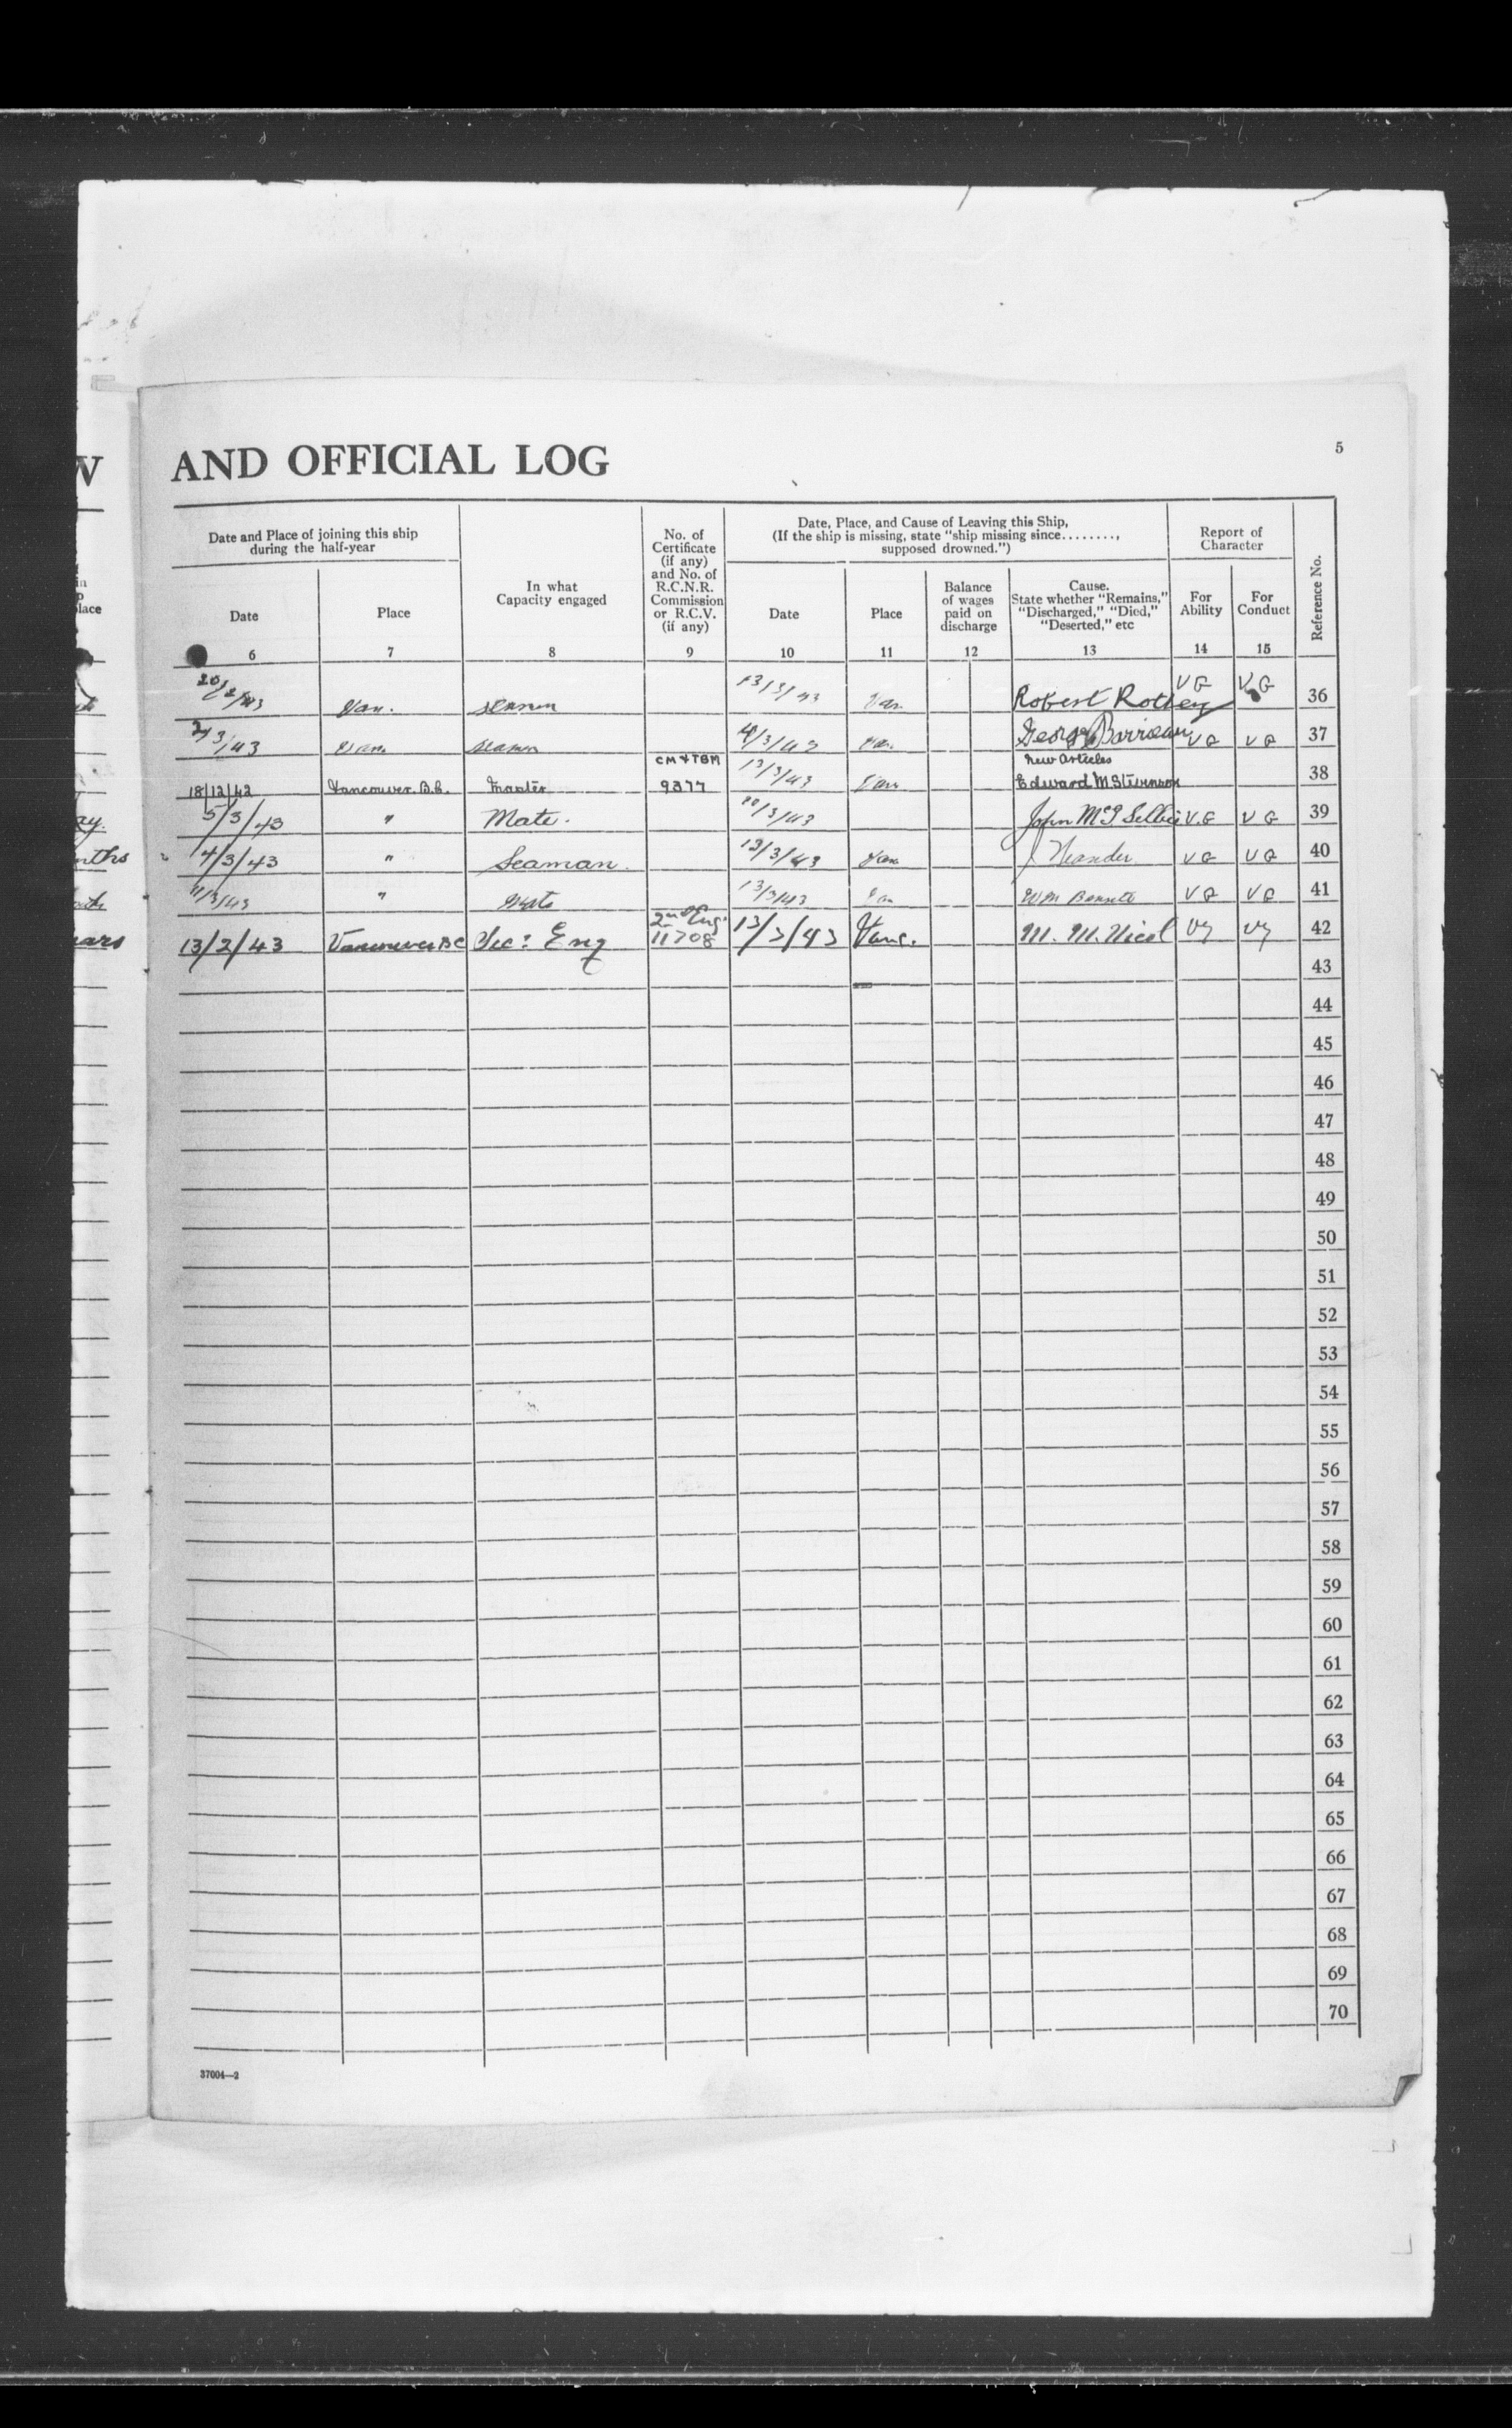 W
AND OFFICIAL LOG
5
Date and Place of joining this ship
during the half-year
In what
Capacity engaged
No. of
Certificate
(if any)
and No. of
R.C.N.R.
Commission
or R.C.V.
(if any)
Date, Place, and Cause of Leaving this Ship,
(If the ship is missing, state "ship missing since........,
supposed drowned.")
Report of
Character
Reference No.
Date
Place
Date
Place
Balance
of wages
paid on
discharge
Cause.
State whether "Remains,"
"Discharged," "Died,"
"Deserted," etc
For
Ability
For
Conduct
6 7 8 9 10 11 12 13 14 15
20/2/43 Van. seaman 13/3/43 Van Robert Rottey VG VG 36
2/3/43 Van seaman /3/43 Van. George Barrieau VG VG 37
18/12/42 Vancouver. B.C. Master CM & TBM 9377 13/3/43 Van New Articles Edward M Stevenson 38
5/3/43 " Mate. /3/43 John McG Selbie V.G VG 39
4/3/43 " Seaman. 13/3/43 Van J Neander VG VG 40
11/3/43 " Mate 13/3/43 Van Wm Bennett VG VG 41
13/2/43 Vancouver BC Sec: Eng 2nd Eng. 11708 13/3/43 Vanc. M. M. Nicol Vg Vg 42
43
44
45
46
47
48
49
50
51
52
53
54
55
56
57
58
59
60
61
62
63
64
65
66
67
68
69
70
37004—2